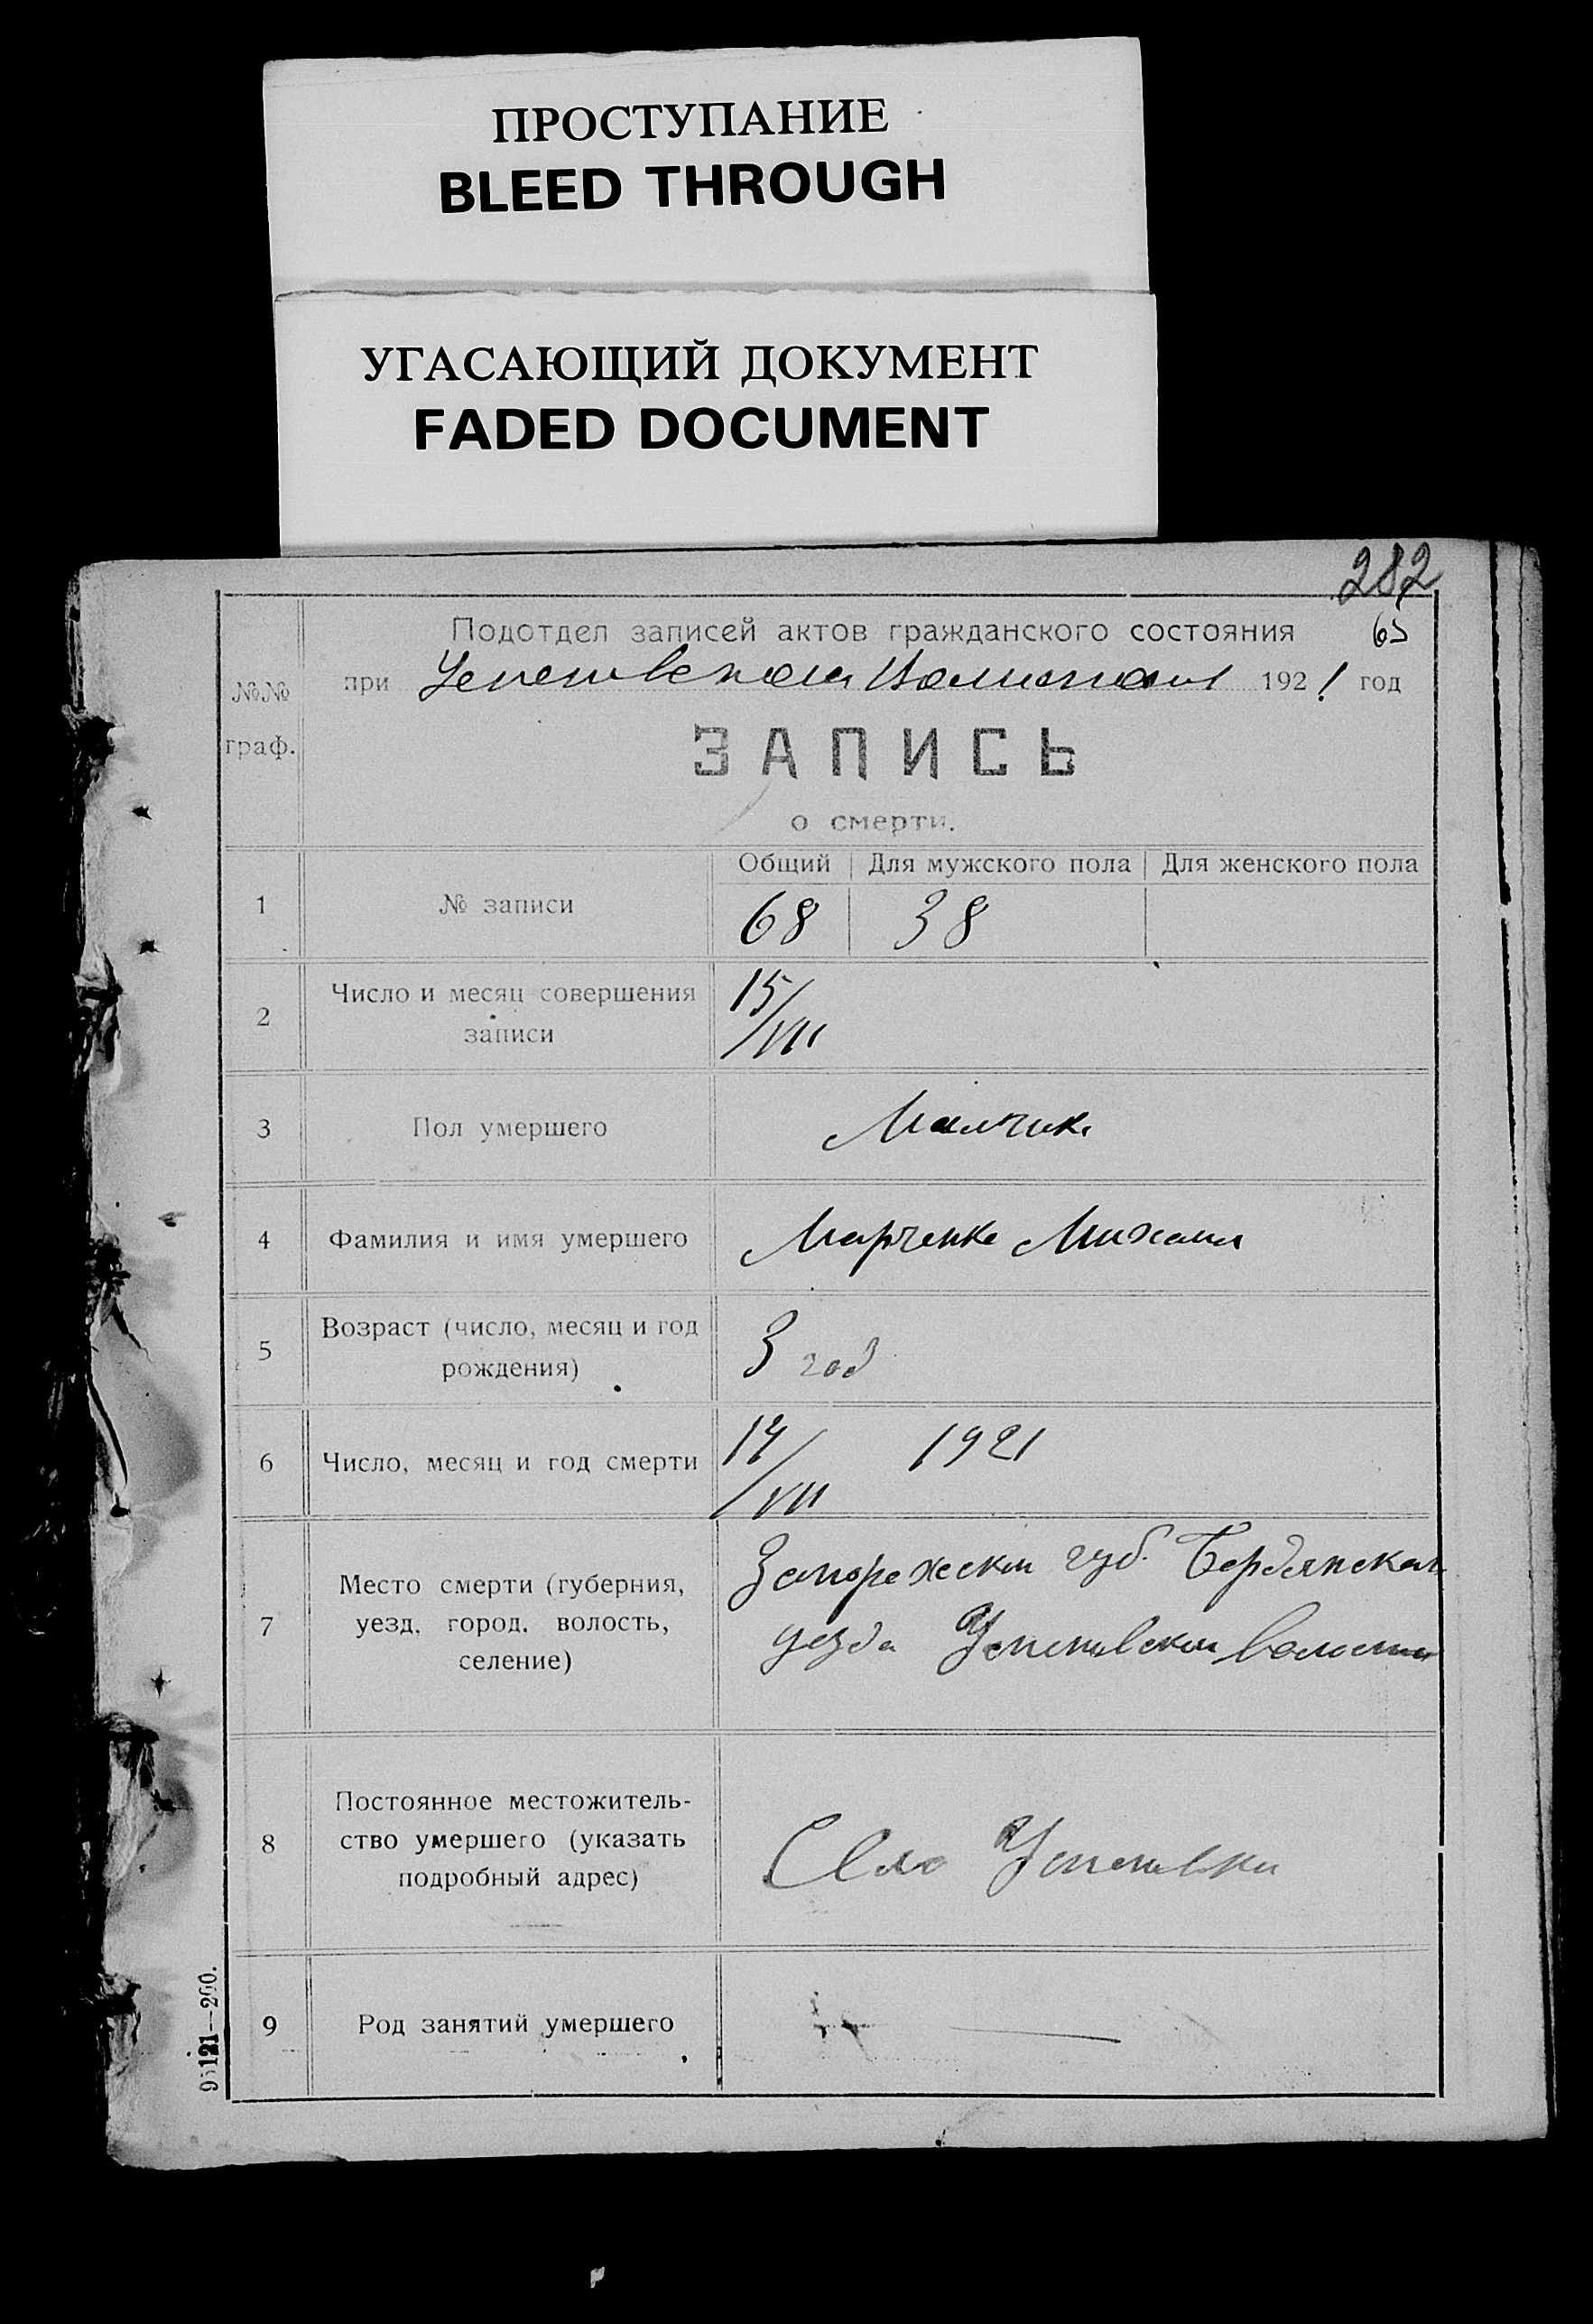 ПРОСТУПАНИЕ
BLEED THROUGH
УГАСАЮЩИЙ ДОКУМЕНТ
FADED DOCUMENT
282
Подотдел записей актов гражданского состояния 65
№№ граф.
при 1921 год
ЗАПИСЬ
о смерти.
Общий Для мужского пола Для женского пола
1 № записи 68 38
2 Число и месяц совершения записи 15/VII
3 Пол умершего Малчик
4 Фамилия и имя умершего Марченко Михаил
5 Возраст (число, месяц и год рождения) 3 год
6 Число, месяц и год смерти 14/VII 1921
7 Место смерти (губерния, уезд, город, волость, селение)
Запорожской губ. Бердянскаго
уезда Успеновской волости
8 Постоянное местожитель-
ство умершего (указать
подробный адрес)
Село Успеновки
9 Род занятий умершего —